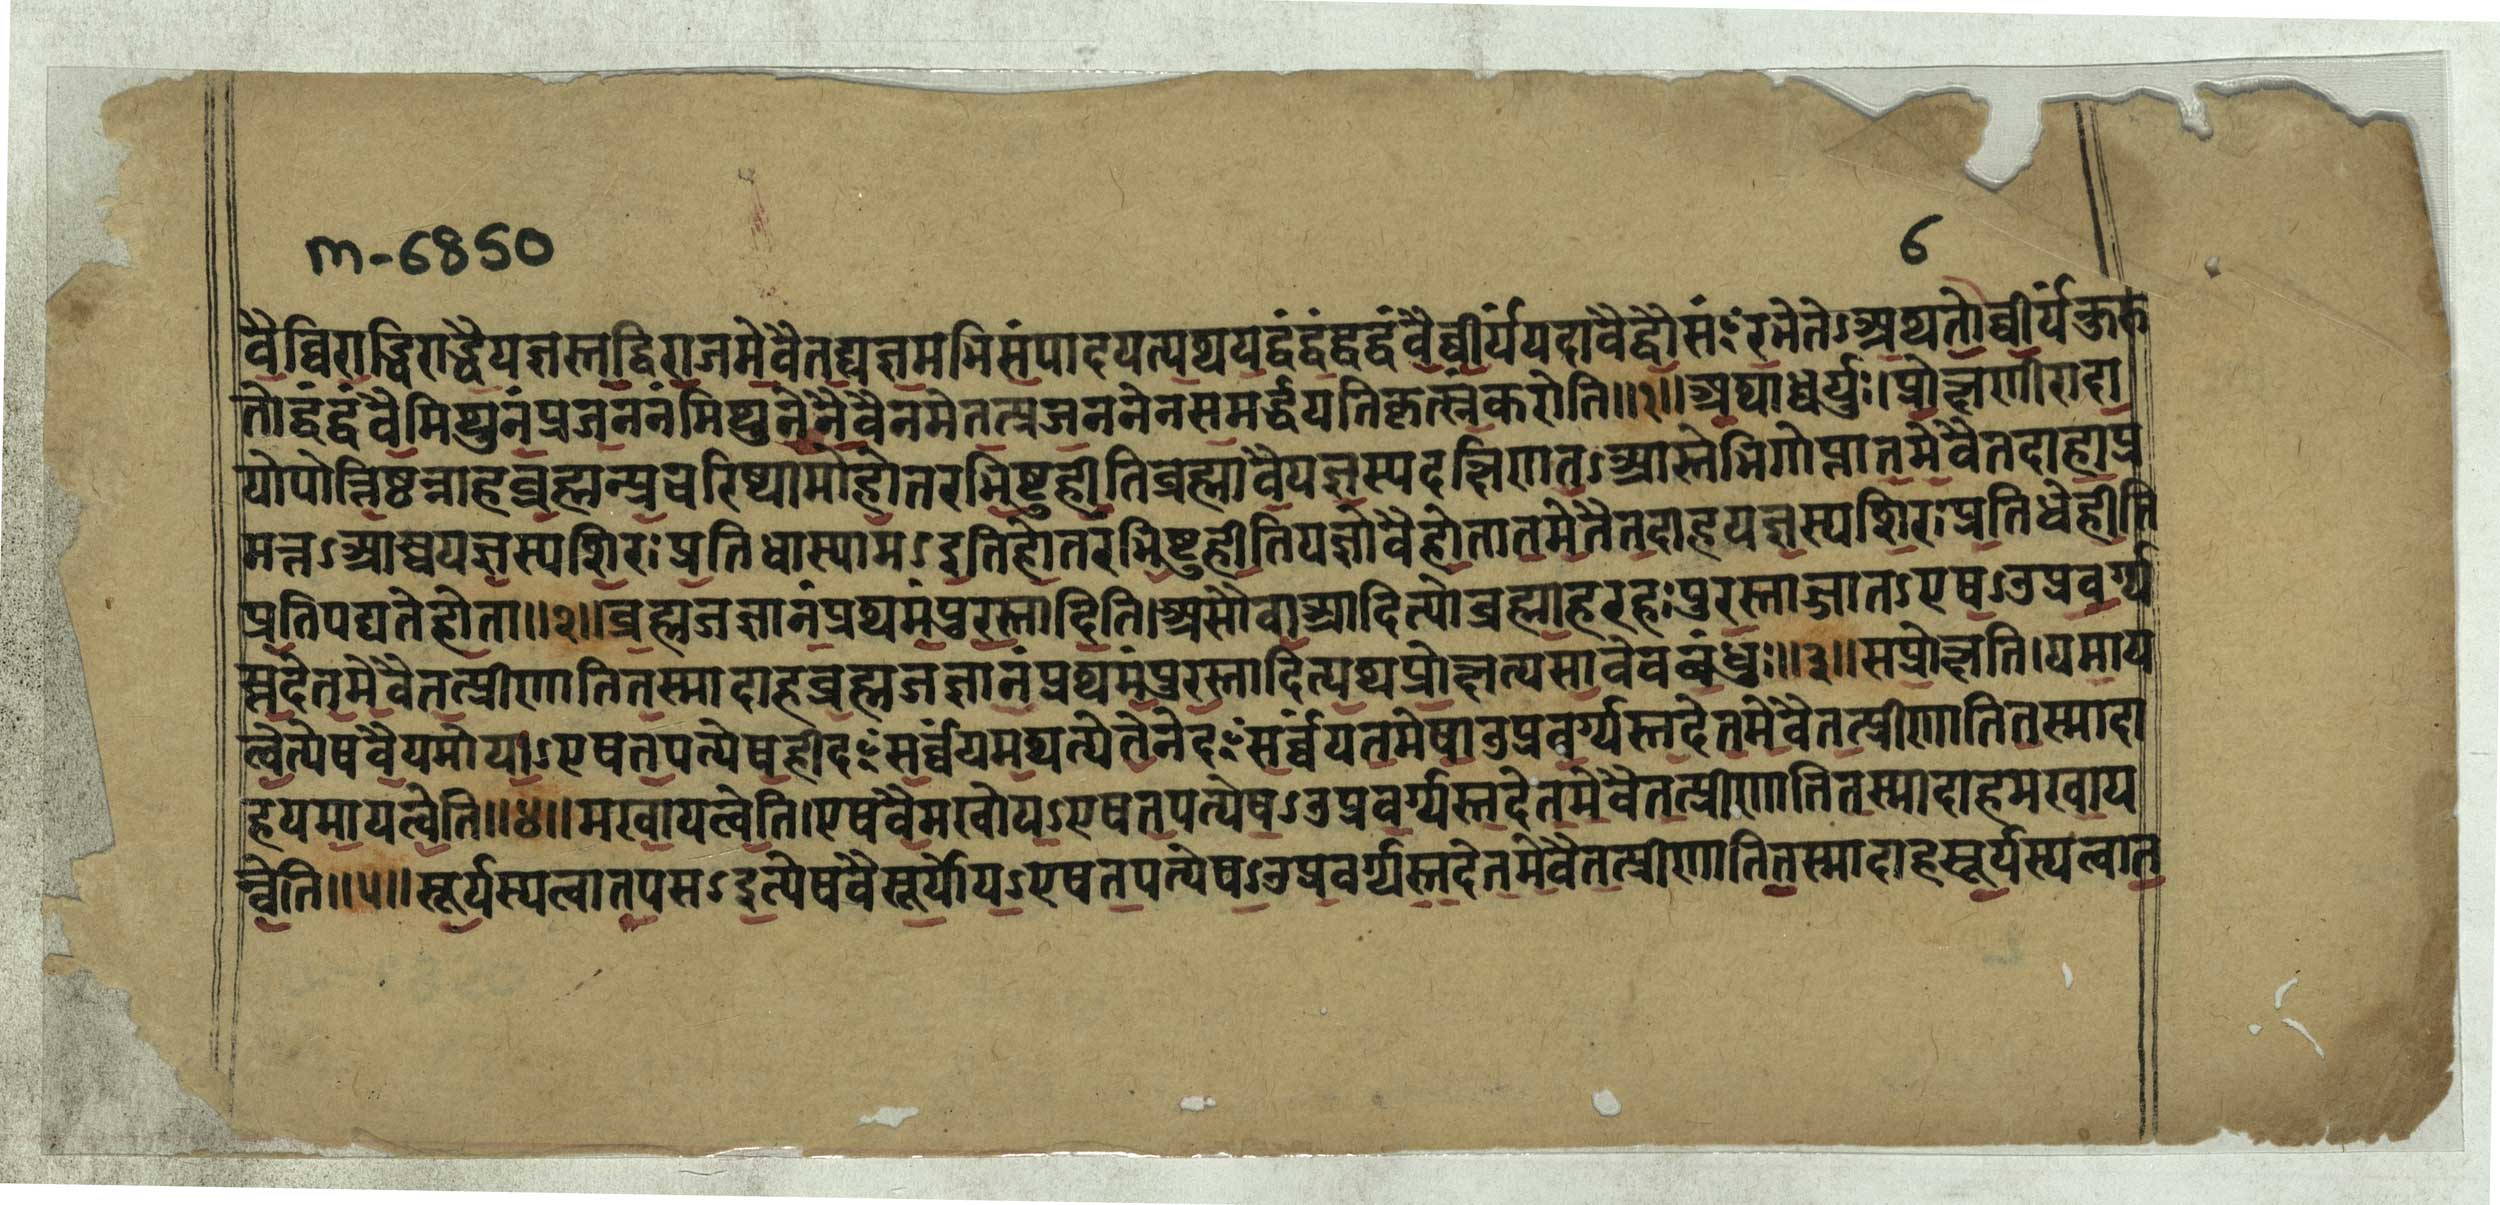 m-6850
6
वैव्विराड्विराड्वैयज्ञस्तद्विराजमेवैतद्यज्ञमभिसंपादयत्यथयद्द्वंद्वंद्द्वंद्वंवैव्वीर्य्ययदावैद्वौसᳪरभेतेऽअथतोव्वीर्यङ्कुरु
तोद्द्वंद्वंवैमिथुनंप्रजननंमिथुनेनैवैनमेतत्प्रजननेनसमर्द्धयतिकृत्स्नंकरोति॥१॥अथाध्वर्युः।प्रोक्षणीरादा
योपोत्तिष्ठन्नाहब्रह्मन्प्रचरिष्यामोहोतरभिष्टुहीतिब्रह्मावैयज्ञस्यदक्षिणतऽआस्तेभिगोप्तातमेवैतदाहाप्र
मत्तऽआस्स्वयज्ञस्यशिरःप्रतिधास्यामऽइतिहोतरभिष्टुहीतियज्ञोवैहोतातमेवैतदाहयज्ञस्यशिरःप्रतिधेहीति
प्रतिपद्यतेहोता॥२॥ब्रह्मजज्ञानंप्रथमंपुरस्तादिति।असौवाआदित्योब्रह्माहरहःपुरस्ताज्जातऽएषऽउप्रवर्ग्य
स्तदेतमेवैतत्प्रीणातितस्मादाहब्रह्मजज्ञानंप्रथमंपुरस्तादित्यथप्रोक्षत्यसावेवबंधुः॥३॥सप्रोक्षति।यमाय
त्वेत्येषवैयमोयाऽएषतपत्येषहीदᳪसर्व्वंयमयत्येतेनेदᳪसर्व्वंयतमेषाउप्रवर्ग्यस्तदेतमेवैतत्प्रीणातितस्मादा
हयमायत्वेति॥४॥मखायत्वेति।एषवैमखोयऽएषतपत्येषऽउप्रवर्ग्यस्तदेतमेवैतत्प्रीणातितस्मादाहमखाय
त्वेति॥५॥सूर्यस्यत्वातपसऽइत्येषवैसूर्योयऽएषतपत्येषऽउप्रवर्ग्यस्तदेतमेवैतत्प्रीणातितस्मादाहसूर्यस्यत्वात